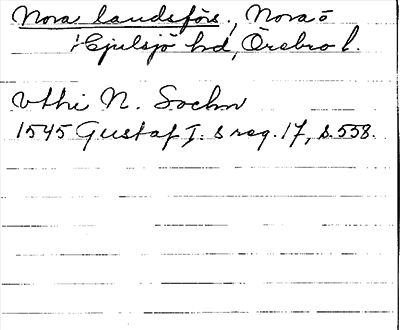 Nora landsförs., Nora ö
Hjulsjö hd, Örebro l.
vthi N. Sochn
1545 Gustaf I:s reg. 17, s. 558.